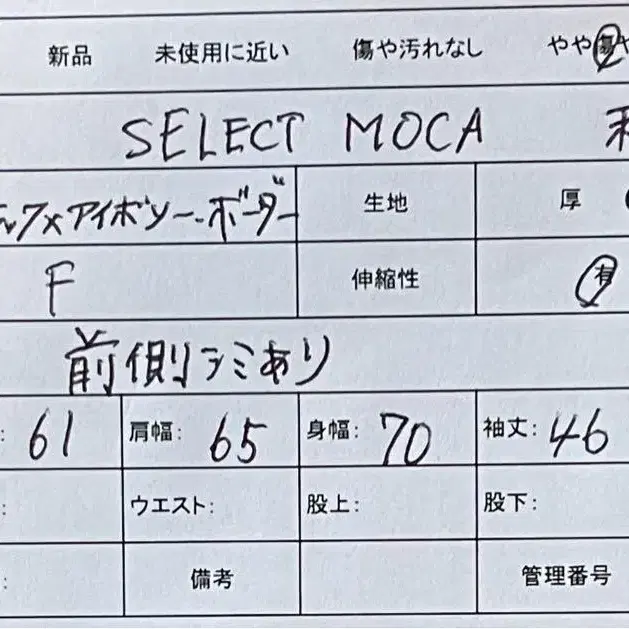 新品 未使用に近い 傷や汚れなし やや傷や
SELECT MOCA
ック×アイボリー・ボーダー 生地 厚
F 伸縮性 有
前側シミあり
: 61 肩幅: 65 身幅: 70 袖丈: 46
: ウエスト: 股上: 股下:
: 備考 管理番号